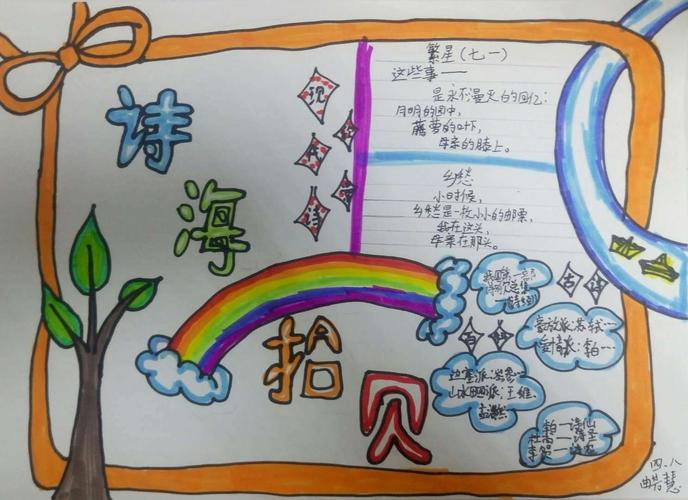 诗海拾贝
现代诗
繁星（七一）
这些事——
是永不漫灭的回忆：
月明的园中，
藤萝的叶下，
母亲的膝上。
乡愁
小时候，
乡愁是一枚小小的邮票，
我在这头，
母亲在那头。
古诗
我国第一
诗歌总集
豪放派：苏轼…
边塞派：岑参…
山水田园派：王维、
孟浩然…
李白—诗仙
杜甫—诗圣
李贺—诗鬼
四.八